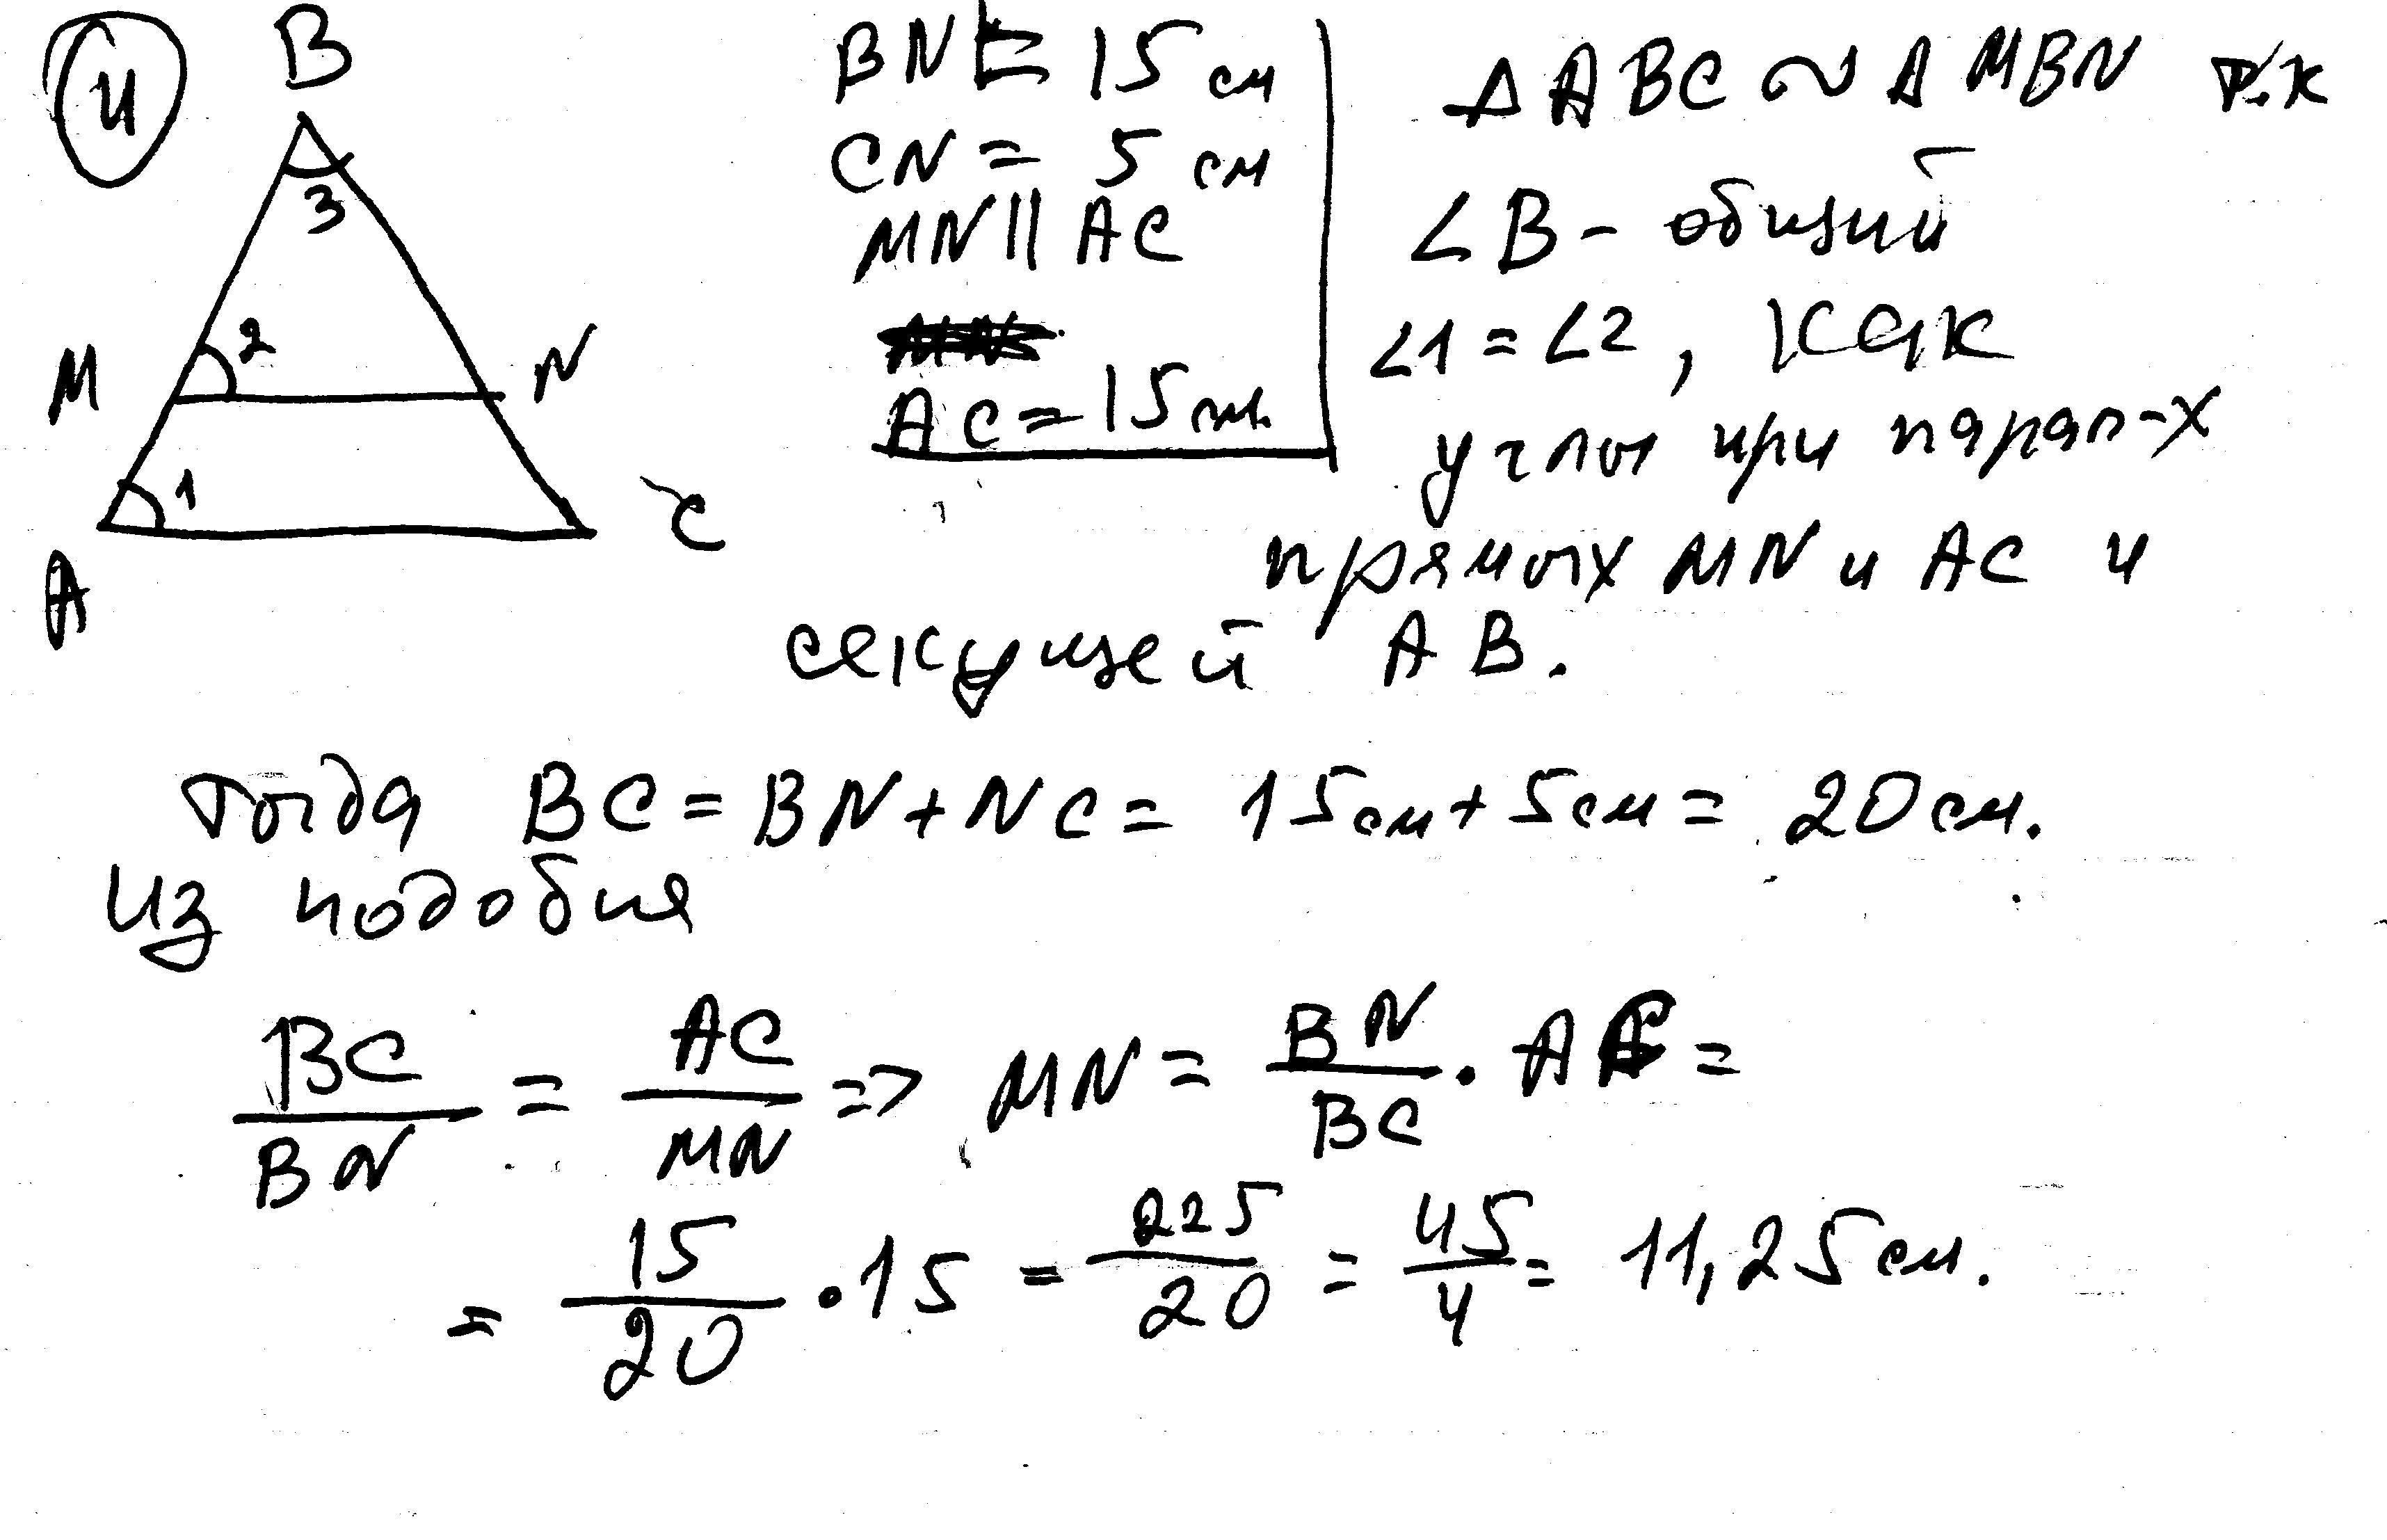 4
B
3
M
2
N
1
A
C
BN = 15 см
CN = 5 см
MN || AC
AC = 15 см.
Δ ABC ∾ Δ MBN т.к
∠B - общий
∠1 = ∠2, как
углы при парал-х
прямых MN и AC и
секущей AB.
Тогда BC = BN + NC = 15см + 5см = 20см.
Из подобия
BC/BN = AC/MN => MN = BN/BC · AC =
= 15/20 · 15 = 225/20 = 45/4 = 11,25 см.